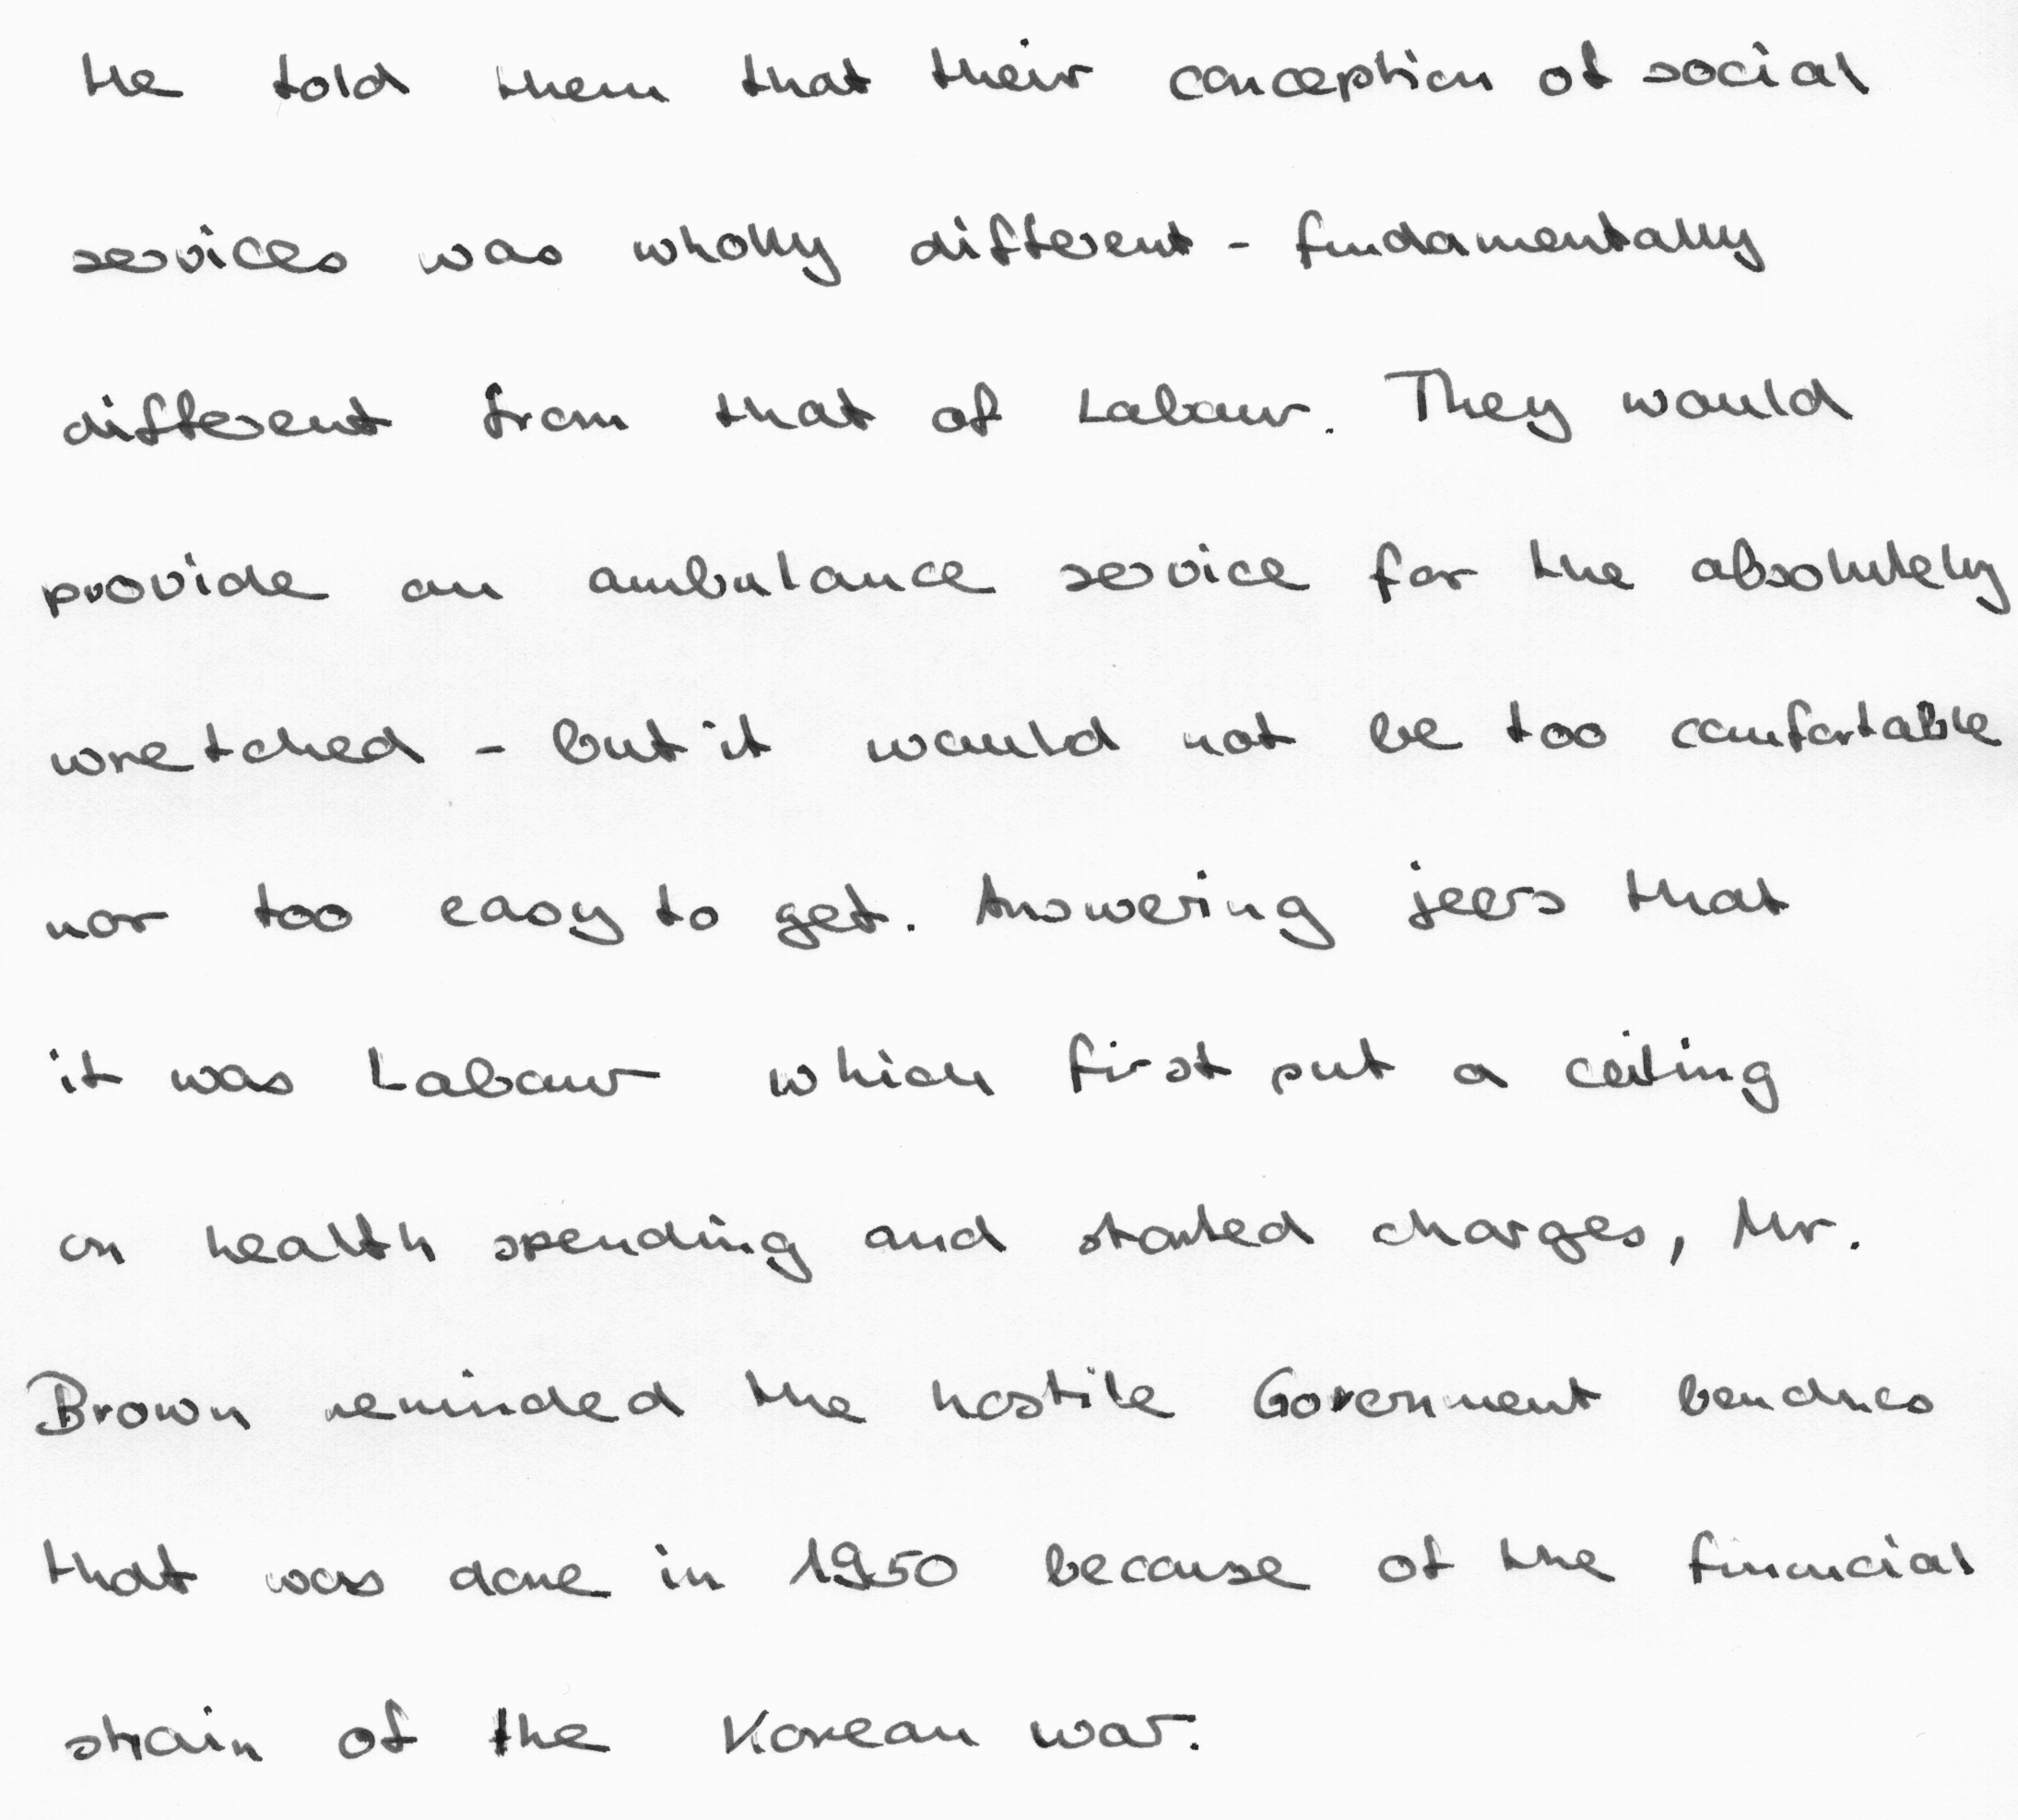 He told them that their conception of social
services was wholly different - fundamentally
different from that of Labour. They would
provide an ambulance service for the absolutely
wretched - but it would not be too comfortable
nor too easy to get. Answering jeers that
it was Labour which first put a ceiling
on health spending and started charges, Mr.
Brown reminded the hostile Government benches
that was done in 1950 because of the financial
strain of the Korean war.